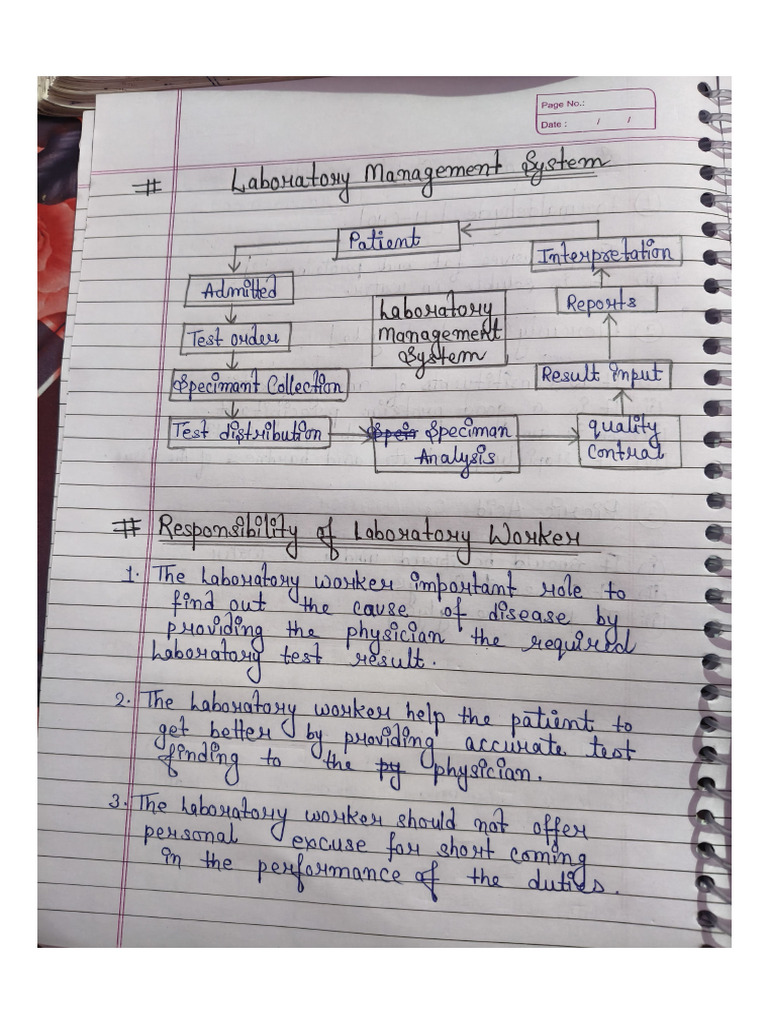 Page No.:
Date : / /
# Laboratory Management System
Patient
Interpretation
Admitted
Laboratory
Management
System
Reports
Test order
Result input
Specimant Collection
Test distribution
Speis Speciman
Analysis
quality
Contral
# Responsibility of Laboratory Worker
1. The Laboratory worker important role to
find out the cause of disease by
providing the physician the required
Laboratory test result.
2. The Laboratory worker help the patient to
get better by providing accurate test
finding to the py physician.
3. The Laboratory worker should not offer
personal excuse for short coming
in the performance of the duties.